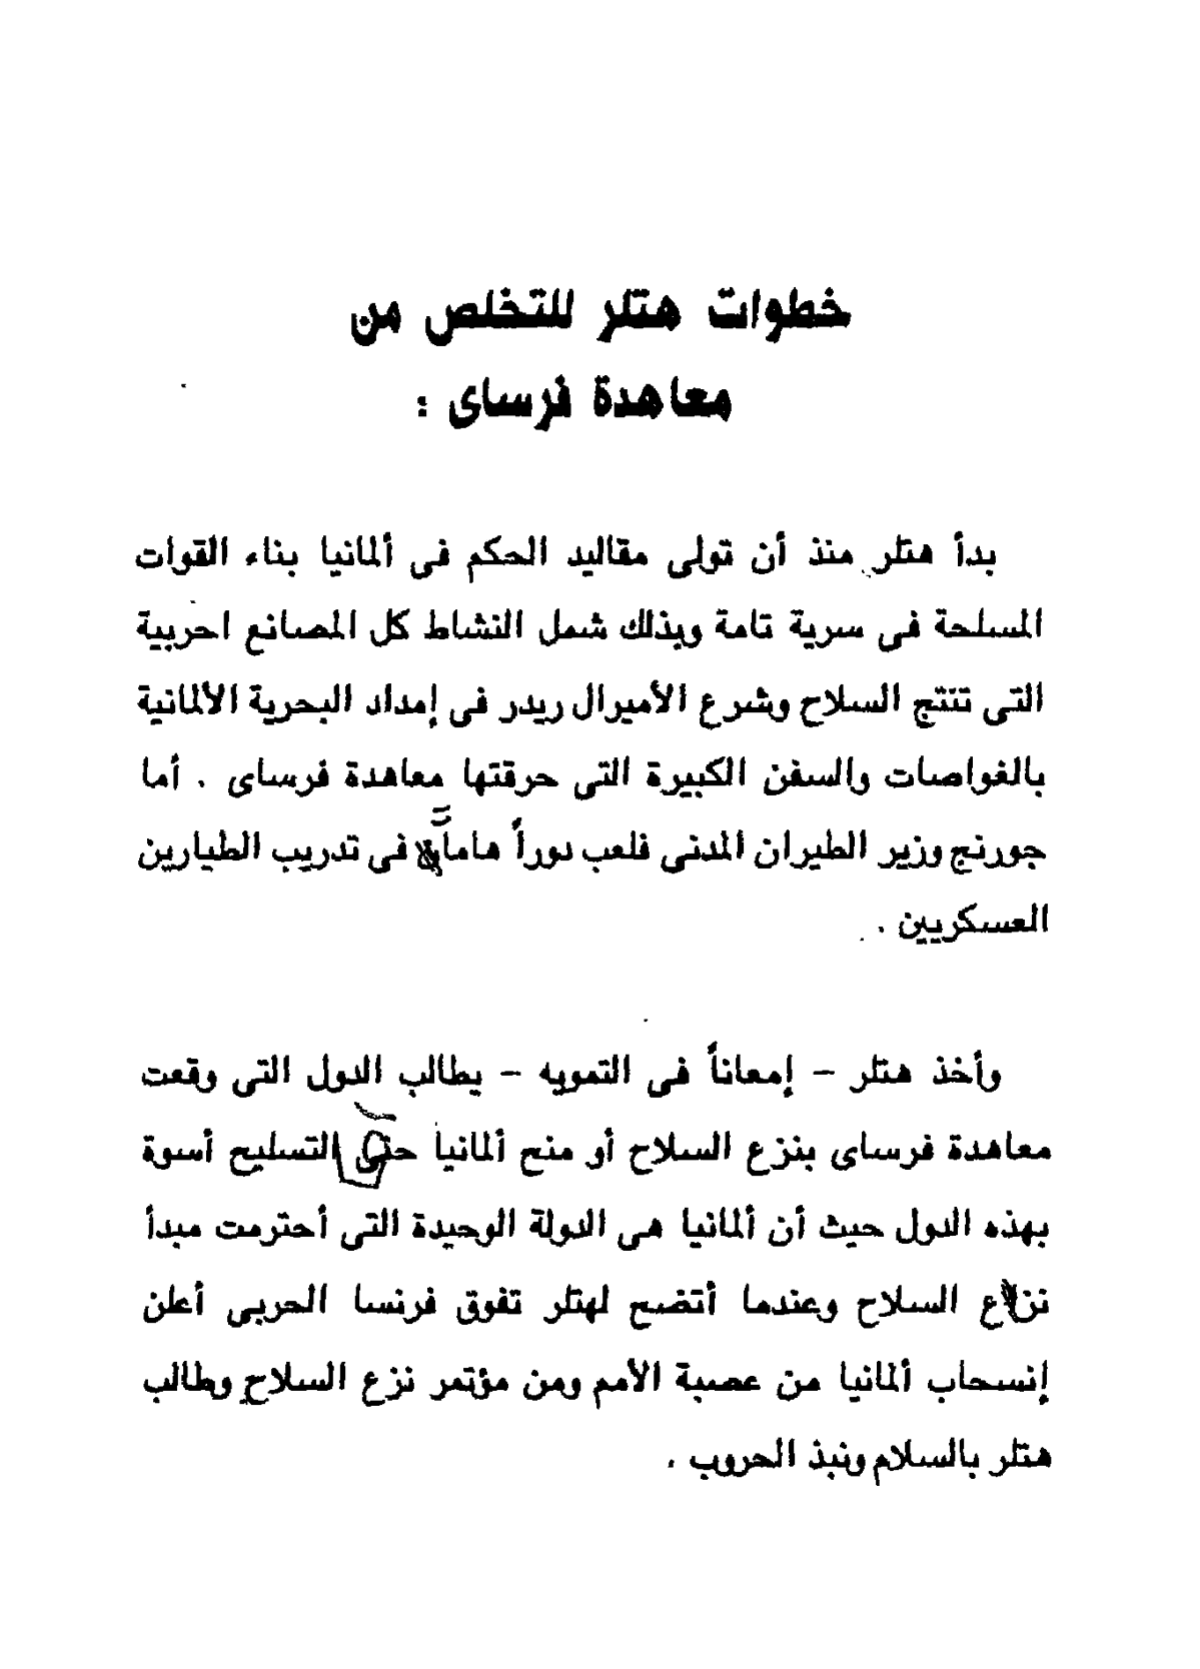 خطوات هتلر للتخلص من
معاهدة فرساى :
بدأ هتلر منذ أن تولى مقاليد الحكم فى ألمانيا بناء القوات
المسلحة فى سرية تامة وبذلك شمل النشاط كل المصانع احربية
التى تنتج السلاح وشرع الأميرال ريدر فى إمداد البحرية الألمانية
بالغواصات والسفن الكبيرة التى حرقتها معاهدة فرساى . أما
جورنج وزير الطيران المدنى فلعب دوراً هاماً فى تدريب الطيارين
العسكريين .
وأخذ هتلر - إمعاناً فى التمويه - يطالب الدول التى وقعت
معاهدة فرساى بنزع السلاح أو منح ألمانيا التسليح أسوة
بهذه الدول حيث أن ألمانيا هى الدولة الوحيدة التى أحترمت مبدأ
نزع السلاح وعندما أتضح لهتلر تفوق فرنسا الحربى أعلن
إنسحاب ألمانيا من عصبة الأمم ومن مؤتمر نزع السلاح وطالب
هتلر بالسلام ونبذ الحروب .